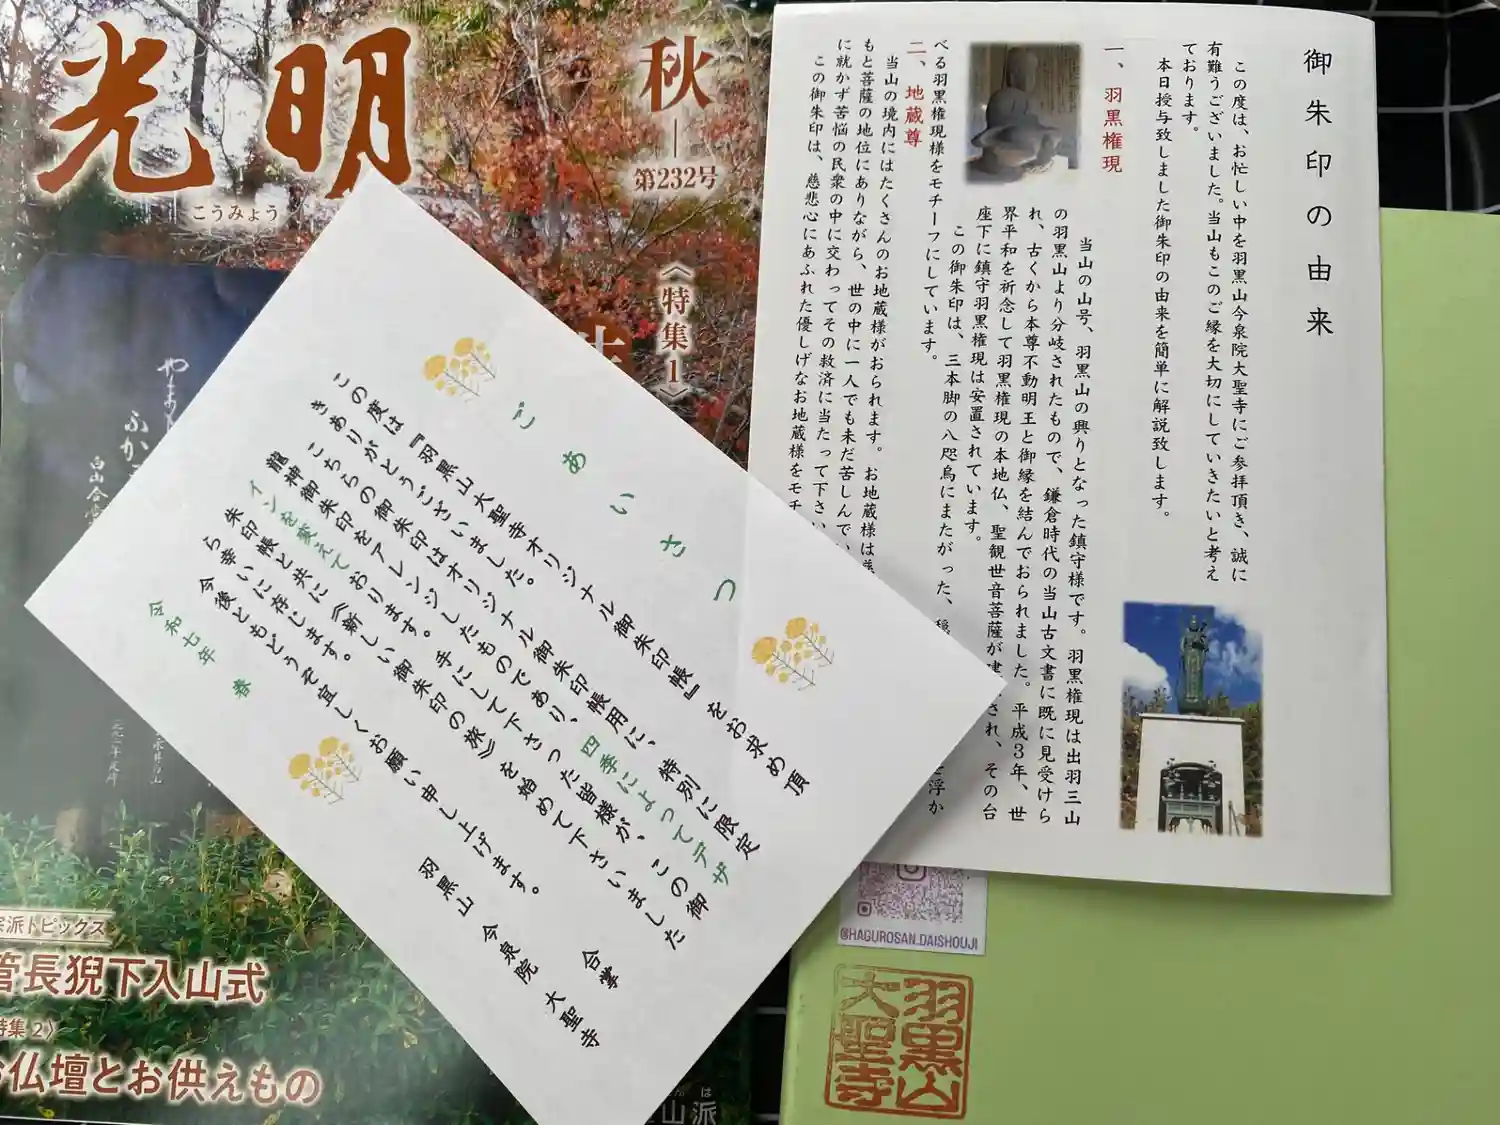 光明
こうみょう
秋
第232号
《特集1》
宗派トピックス
管長猊下入山式
特集2》
お仏壇とお供えもの
ごあいさつ
この度は『羽黒山大聖寺オリジナル御朱印帳』をお求め頂
きありがとうございました。
こちらの御朱印はオリジナル御朱印帳用に、特別に限定
龍神御朱印をアレンジしたものであり、四季によってデザ
インを変えております。手にして下さった皆様が、この御
朱印帳と共に《新しい御朱印の旅》を始めて下さいました
ら幸いに存じます。
今後ともどうぞ宜しくお願い申し上げます。
合掌
令和七年 春
羽黒山 今泉院 大聖寺
御朱印の由来
この度は、お忙しい中を羽黒山今泉院大聖寺にご参拝頂き、誠に
有難うございました。当山もこのご縁を大切にしていきたいと考え
ております。
本日授与致しました御朱印の由来を簡単に解説致します。
一、羽黒権現
当山の山号、羽黒山の興りとなった鎮守様です。羽黒権現は出羽三山
の羽黒山より分岐されたもので、鎌倉時代の当山古文書に既に見受けら
れ、古くから本尊不動明王と御縁を結んでおられました。平成3年、世
界平和を祈念して羽黒権現の本地仏、聖観世音菩薩が建
され、その台
座下に鎮守羽黒権現は安置されています。
この御朱印は、三本脚の八咫烏にまたがった、
浮か
べる羽黒権現様をモチーフにしています。
二、地蔵尊
当山の境内にはたくさんのお地蔵様がおられます。お地蔵様は
もと菩薩の地位にありながら、世の中に一人でも未だ苦しんで
に就かず苦悩の民衆の中に交わってその救済に当たって下さい
この御朱印は、慈悲心にあふれた優しげなお地蔵様をモチ
@HAGUROSAN.DAISHOUJI
羽黒山
大聖寺
山派